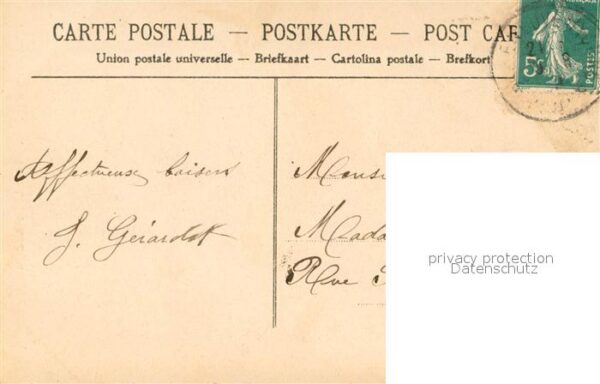 CARTE POSTALE — POSTKARTE — POST CAR
Union postale universelle — Briefkaart — Cartolina postale — Brefkort
5c
POSTES
21
Affectueux baisers
G. Gérardot
Monsi
Mada
Rue
privacy protection
Datenschutz